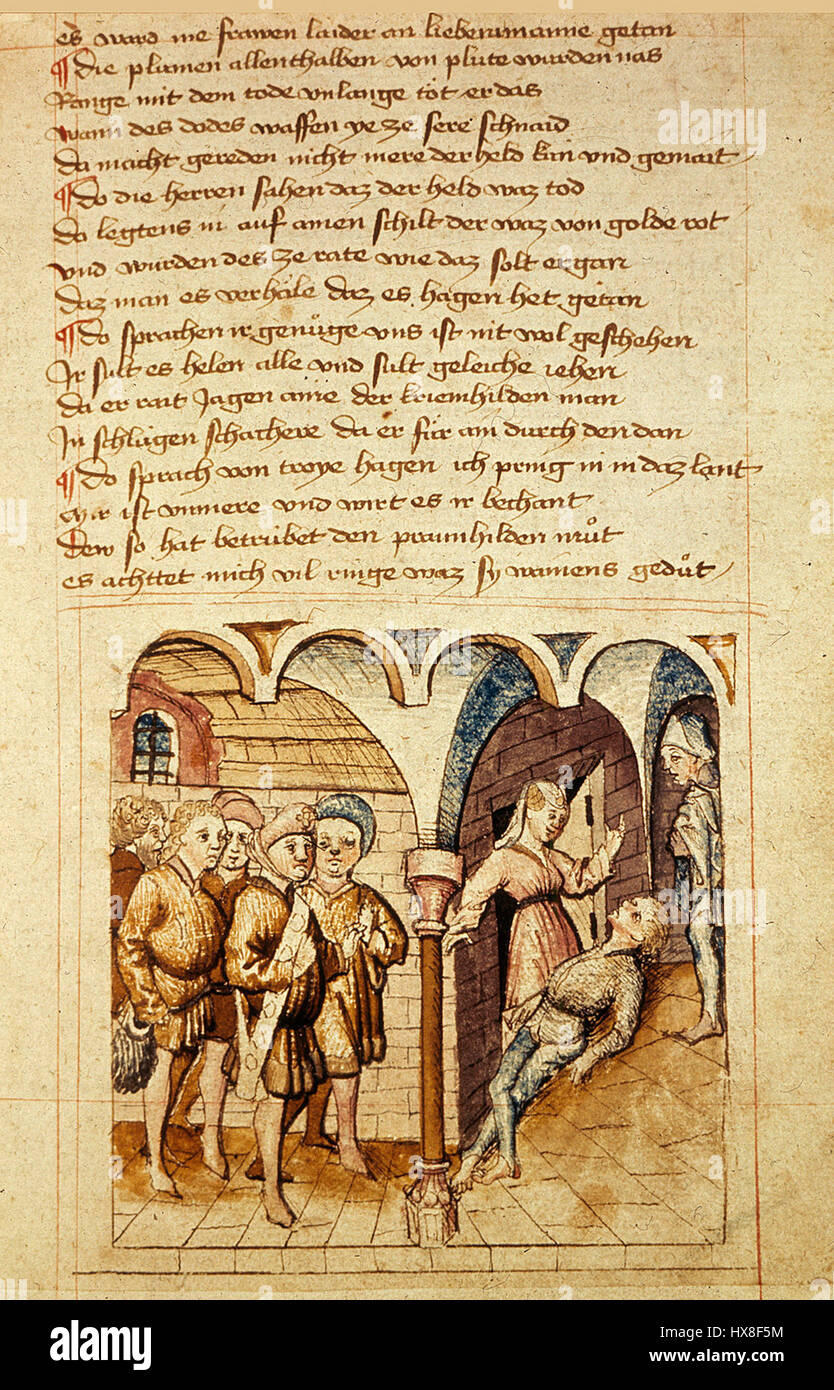 es ward nie frawen laider an liebem manne getan
¶ die plumen allenthalben von plute wurden nas
Range mit dem tode vnlange tot er das
wann des dodes waffen ye ze sere schnaid
da macht gereden nicht mere der held kün und gemait
¶ do die herren sahen daz der held waz tod
do legtens in auf ainen schilt der waz von golde rot
vnd wurden des ze rate wie daz solt ergan
daz man es verhäle daz es hagen het getan
¶ do sprachen ir genůge vns ist nit wol geschehen
Ir sult es helen alle vnd sult geleiche iehen
da er rait Jagen aine der kriemhilden man
In schlůgen schachere da er für ain durch den dan
¶ do sprach von troye hagen ich pring in in daz lant
Mir ist vnmere vnd wirt es ir bechant
Dew so hat betrübet den praunhilden můt
es achttet mich vil ringe waz sy wainens gedůt
alamy
alamy
a
a
alamy stock photo
HX8F5M
www.alamy.com